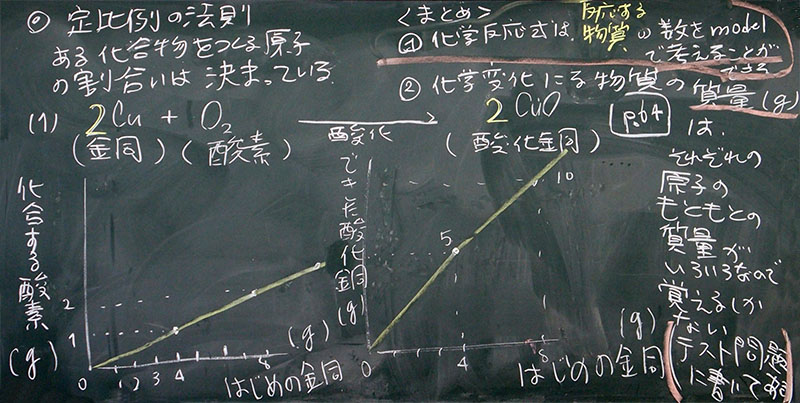 ◎ 定比例の法則
ある化合物をつくる原子
の割合いは 決まっている.
(1) 2Cu + O₂ → 2CuO
(金同) (酸素) 酸化 (酸化金同)
化合する酸素
(g)
2
1
0 1 2 3 4 8
(g)
はじめの金同
できた酸化銅
(g)
10
5
0 4 8
(g)
はじめの金同
<まとめ>
① 化学反応式は、反応する
物質の数をmodel
で考えることが
できる
② 化学変化による物質の質量(g)
p.64
は、
それぞれの
原子の
もともとの
質量が
いろいろなので
覚えるしか
ない
(テスト問題
に書いてある)